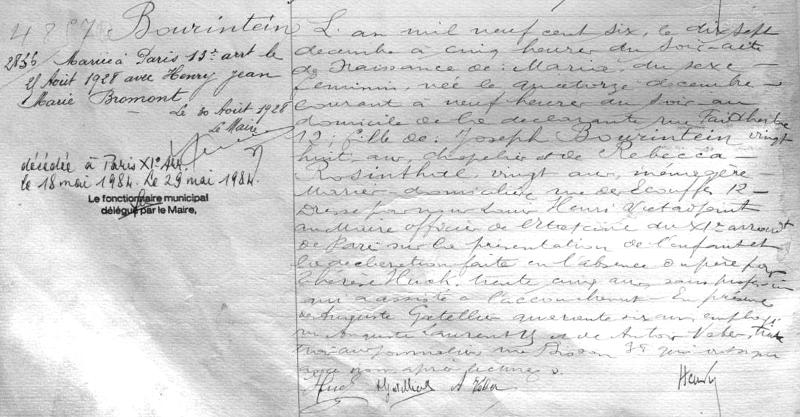 4867 Bourintein
2856 Mariée à Paris 13e arrt le
25 Août 1928 avec Henry Jean
Marie Bromont
Le 30 Août 1928
Le Maire
décédée à Paris XIe Arr.
le 18 mai 1984. Le 29 mai 1984.
Le fonctionnaire municipal
délégué par le Maire,
L'an mil neuf cent six, le dix sept
décembre à cinq heures du soir acte
de Naissance de Marie du sexe
féminin, née le quatorze décembre
courant à neuf heures du soir au
domicile de la déclarante rue Faidherbe
12; fille de Joseph Bourintein vingt
huit ans, chapelier et de Rebecca
Rosinthal vingt ans, ménagère
Mariés domiciliés rue des Ecouffes 12
Dressé par nous Louis Henri
au Maire officier de l'Etat civil du XIe arrondt
de Paris sur la présentation de l'enfant et
la déclaration faite en l'absence du père par
Thérèse Huck, trente cinq ans sans profession
qui a assisté à l'accouchement En présence
de Auguste Gatellier quarante six ans, employé
rue Auguste Laurent et de Antoine Veber, trente
ans journalier rue 38 qui ont signé
avec nous après lecture
Huck Gatellier A Veber